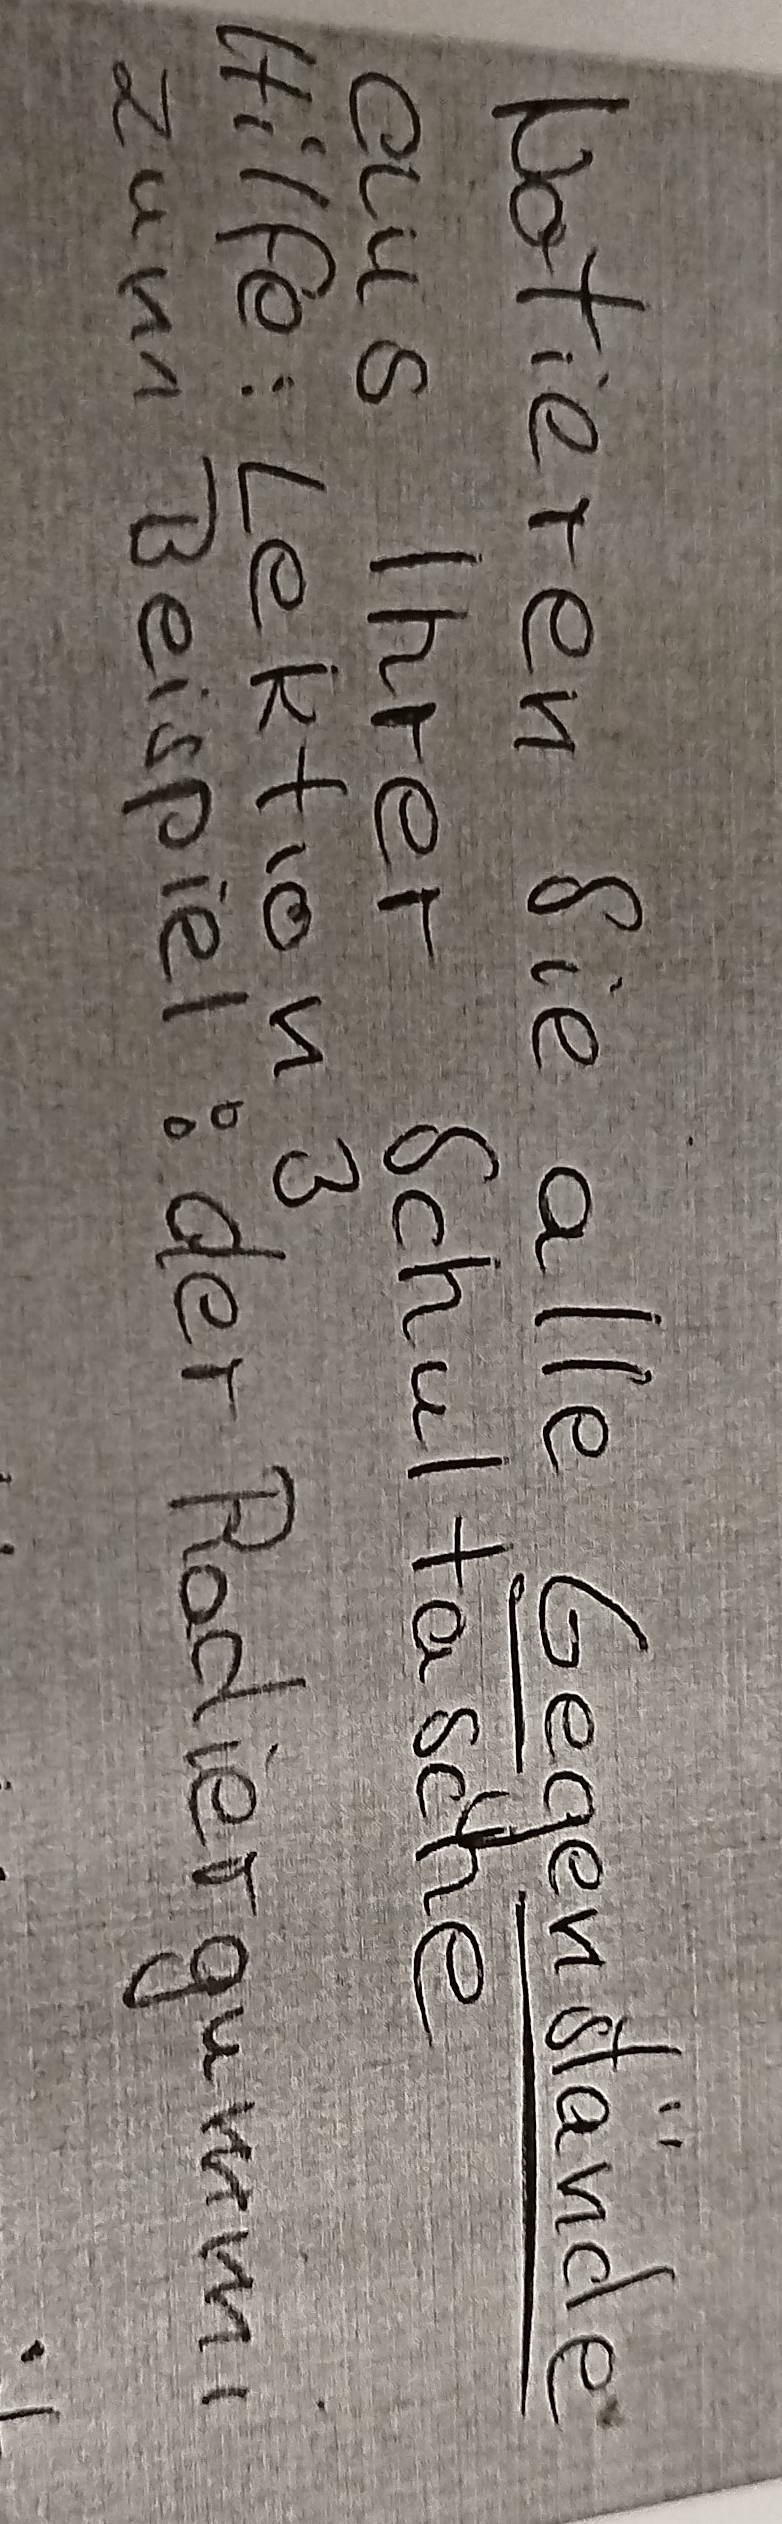 Notieren Sie alle Gegenstände
aus Ihrer Schultasche
Hilfe: Lektion 3
zum Beispiel: der Radiergummi